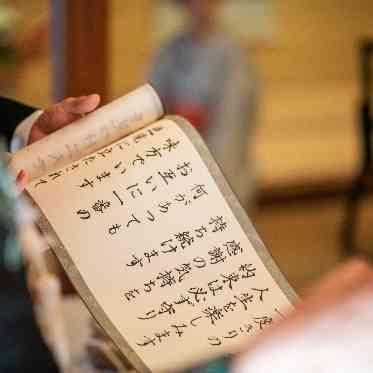 一度きりの
人生を楽しみます
約束は必ず守り
感謝の気持ちを
持ち続けます
何があっても
お互いに一番の
味方でいます